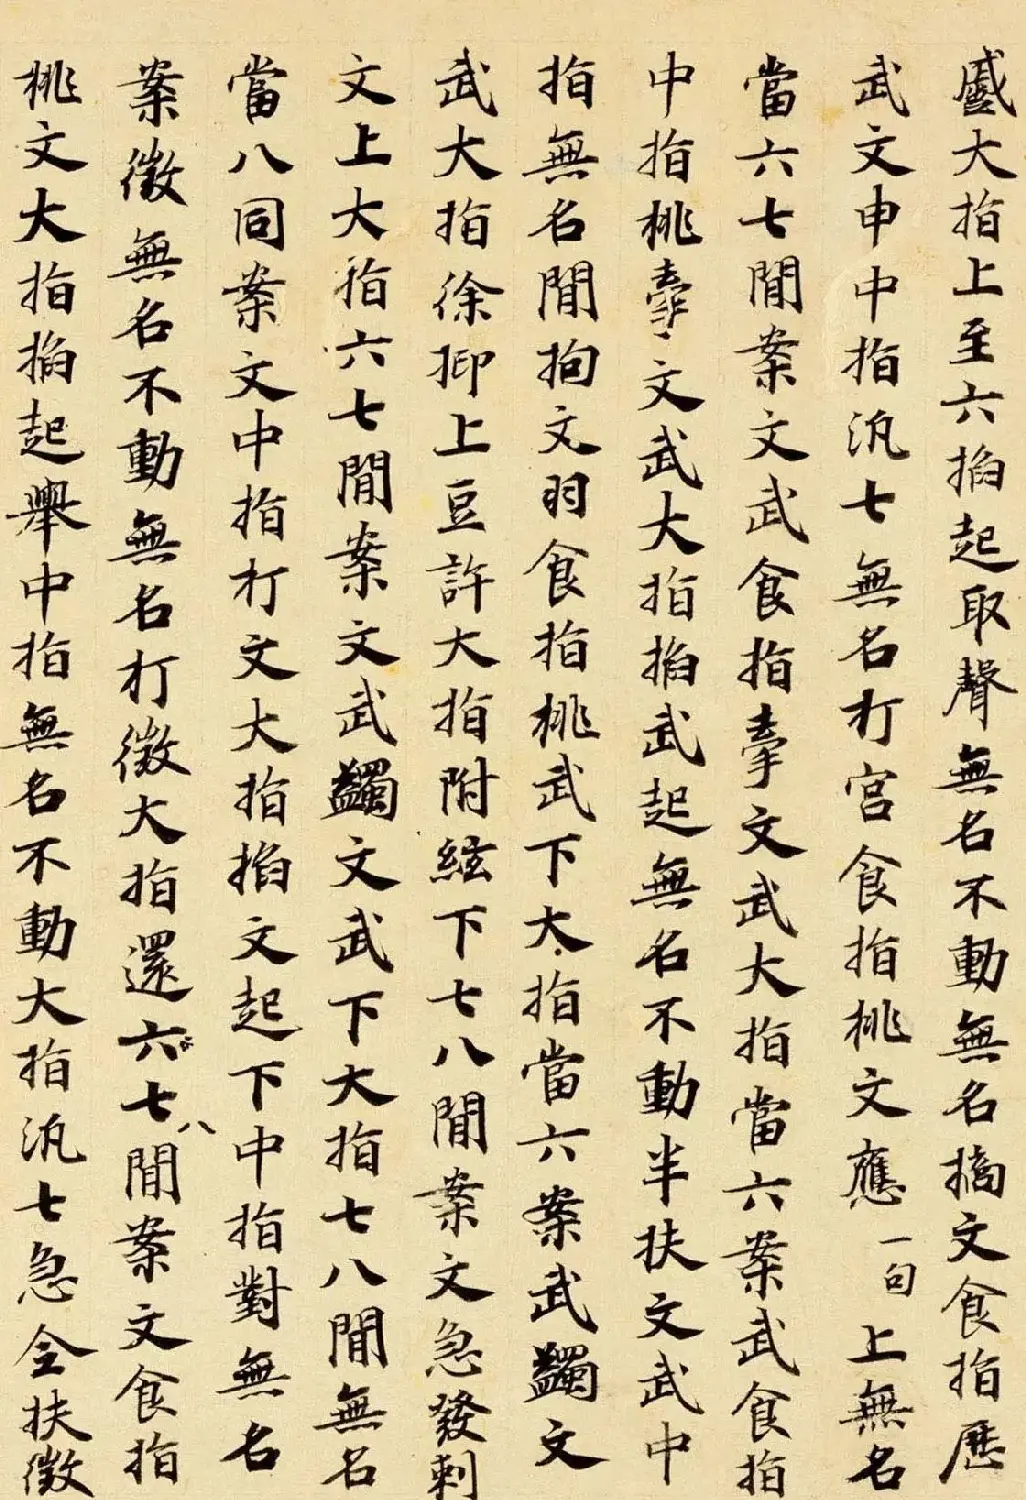 蹙大指上至六掐起取聲無名不動無名擿文食指歷
武文中中指汎七無名打宮食指桃文應一句上無名
當六七間案文武食指牽文武大指當六案武食指
中指桃牽文武大指掐武起無名不動半扶文武中
指無名間拘文羽食指桃武下大指當六案武蠲文
武大指徐抑上豆許大指附絃下七八間案文急發刺
文上大指六七間案文武蠲文武下大指七八間無名
當八同案文中指打文大指掐文起下中指對無名
案徵無名不動無名打徵大指還六七八間案文食指
桃文大指掐起舉中指無名不動大指汎七急全扶徵